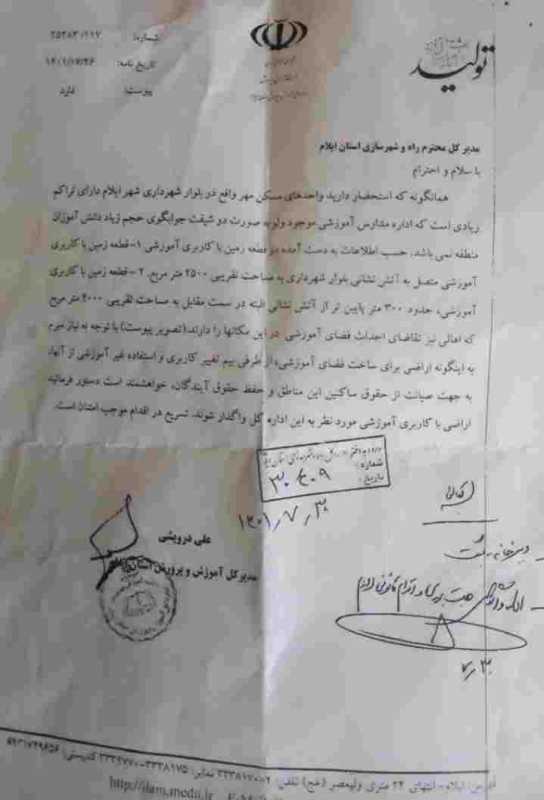 تولید
شماره: ۲۵۲۸۳/۱۱۷
تاریخ نامه: ۱۴۰۱/۰۷/۲۶
پیوست: ندارد
مدیر کل محترم راه و شهرسازی استان ایلام
با سلام و احترام
همانگونه که استحضار دارید واحدهای مسکن مهر واقع در بلوار شهرداری شهر ایلام دارای تراکم
زیادی است که اداره مدارس آموزشی موجود ولو به صورت دو شیفت جوابگوی حجم زیاد دانش آموزان
منطقه نمی باشد. حسب اطلاعات به دست آمده دو قطعه زمین با کاربری آموزشی ۱-قطعه زمین با کاربری
آموزشی متصل به آتش نشانی بلوار شهرداری به مساحت تقریبی ۲۵۰۰ متر مربع. ۲-قطعه زمین با کاربری
آموزشی، حدود ۳۰۰ متر پایین تر از آتش نشانی البته در سمت مقابل به مساحت تقریبی ۴۰۰۰ متر مربع
که اهالی نیز تقاضای احداث فضای آموزشی در این مکانها را دارند.(تصویر پیوست) با توجه به نیاز مبرم
به اینگونه اراضی برای ساخت فضای آموزشی، از طرفی بیم تغییر کاربری و استفاده غیر آموزشی از آنها،
به جهت صیانت از حقوق ساکنین این مناطق و حفظ حقوق آیندگان، خواهشمند است دستور فرمائید
اراضی با کاربری آموزشی مورد نظر به این اداره کل واگذار شوند. تسریع در اقدام موجب امتنان است.
شماره: ۳۰۶۰۹
تاریخ:
۱۴۰۱/۷/۳۰
علی درویشی
مدیرکل آموزش و پرورش استان ایلام
دبیرخانه
۷/۳۰
آدرس: ایلام- انتهای ۲۴ متری ولیعصر (عج) تلفن: نمابر: کدپستی:
http://ilam.medu.ir